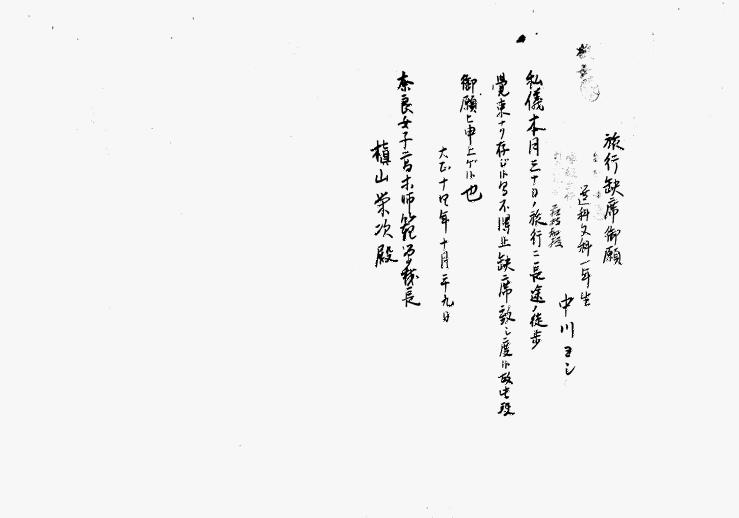 旅行缺席御願
選科文科一年生
中川ヨシ
私儀本月三十日ノ旅行ニ長途ノ徒歩
覺束ナク存ジ候為不得止缺席致シ度候故此段
御願ヒ申上ゲ候也
大正十四年十月二十九日
奈良女子高等師範学校長
槇山栄次殿